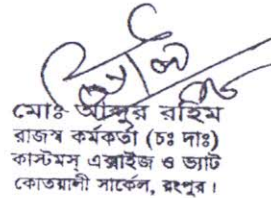 মোঃ আব্দুর রহিম
রাজস্ব কর্মকর্তা (চঃ দাঃ)
কাস্টমস্ এক্সাইজ ও ভ্যাট
কোতয়ালী সার্কেল, রংপুর।